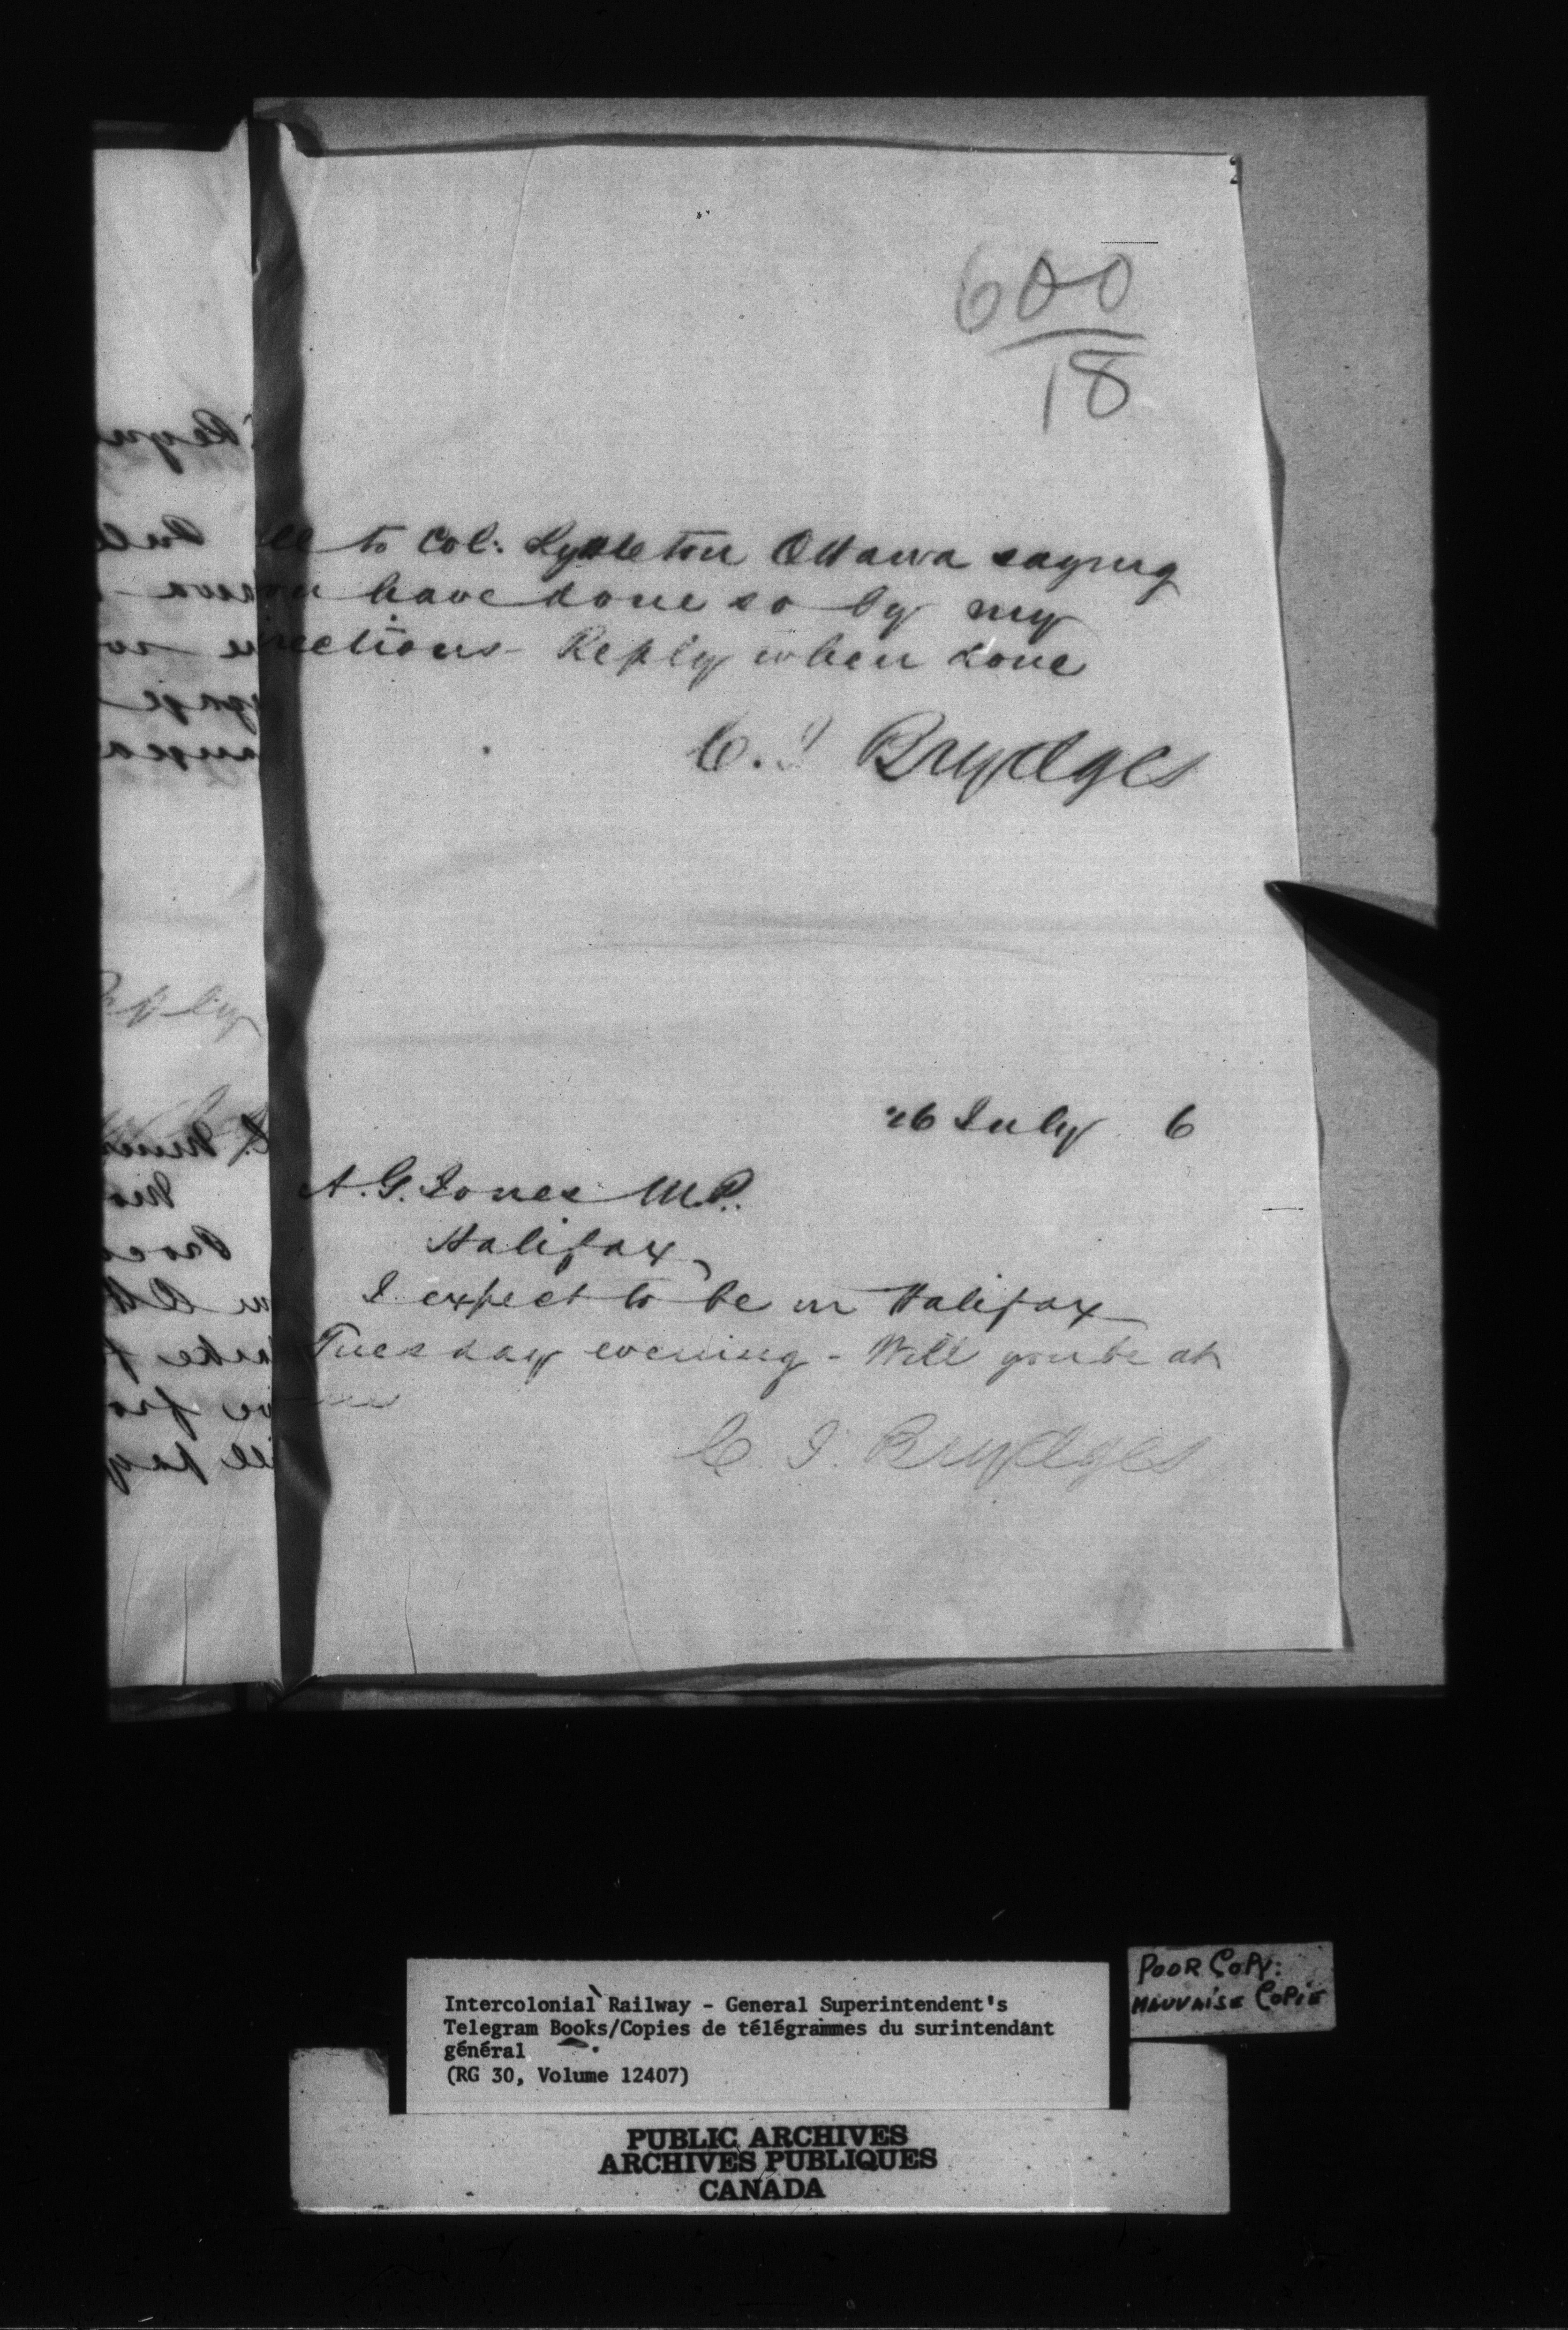 600
18
to Col: Lyttleton Ottawa saying
have done so by my
rections - Reply when done
C. J Brydges
26 July 6
A. G. Jones M.P.
Halifax
I expect to be in Halifax
Tuesday evening - Will you be at
C. J. Brydges
Intercolonial Railway - General Superintendent's
Telegram Books/Copies de télégrammes du surintendant
général
(RG 30, Volume 12407)
POOR COPY:
MAUVAISE COPIE
PUBLIC ARCHIVES
ARCHIVES PUBLIQUES
CANADA